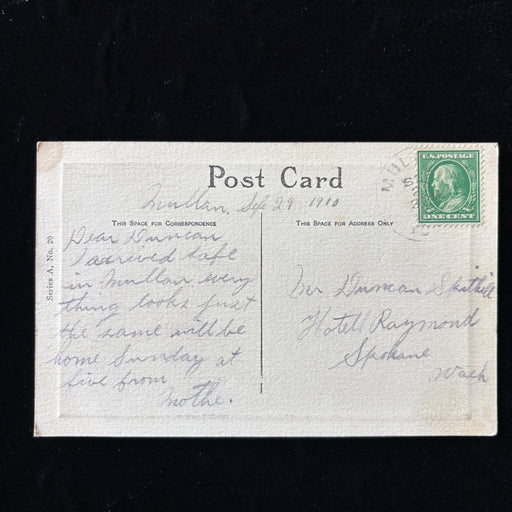 Post Card
MUL
U.S. POSTAGE
ONE CENT
Mullan, Sep 29 1910
THIS SPACE FOR CORRESPONDENCE
THIS SPACE FOR ADDRESS ONLY
Series A, No. 20
Dear Duncan
I arrived safe
in Mullan every
thing looks just
the same will be
home Sunday at
five from
Mothe.
Mr Duncan
Hotell Raymond
Spokane
Wash